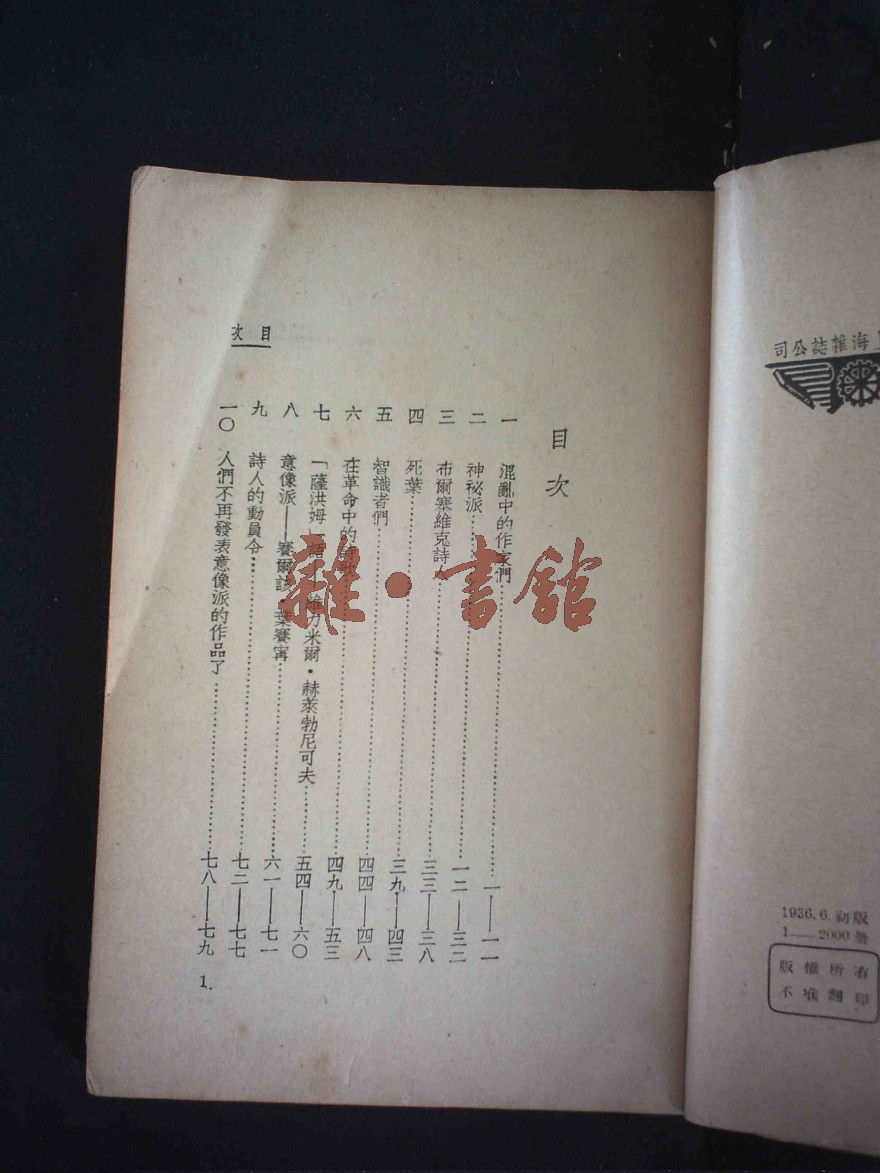 上海雜誌公司
1936.6.初版
1——2000冊
版權所有
不准翻印
目次
一 混亂中的作家們…………一——一一
二 神祕派…………一二——三二
三 布爾塞維克詩人…………三三——三八
四 死葉…………三九——四三
五 智識者們…………四四——四八
六 在革命中的詩歌…………四九——五三
七 「薩洪姆」語 維力米爾·赫萊勃尼可夫…………五四——六〇
八 意像派——賽爾該·葉賽甯…………六一——七一
九 詩人的動員令…………七二——七七
一〇 人們不再發表意像派的作品了…………七八——七九
目次
1.
雜·書館